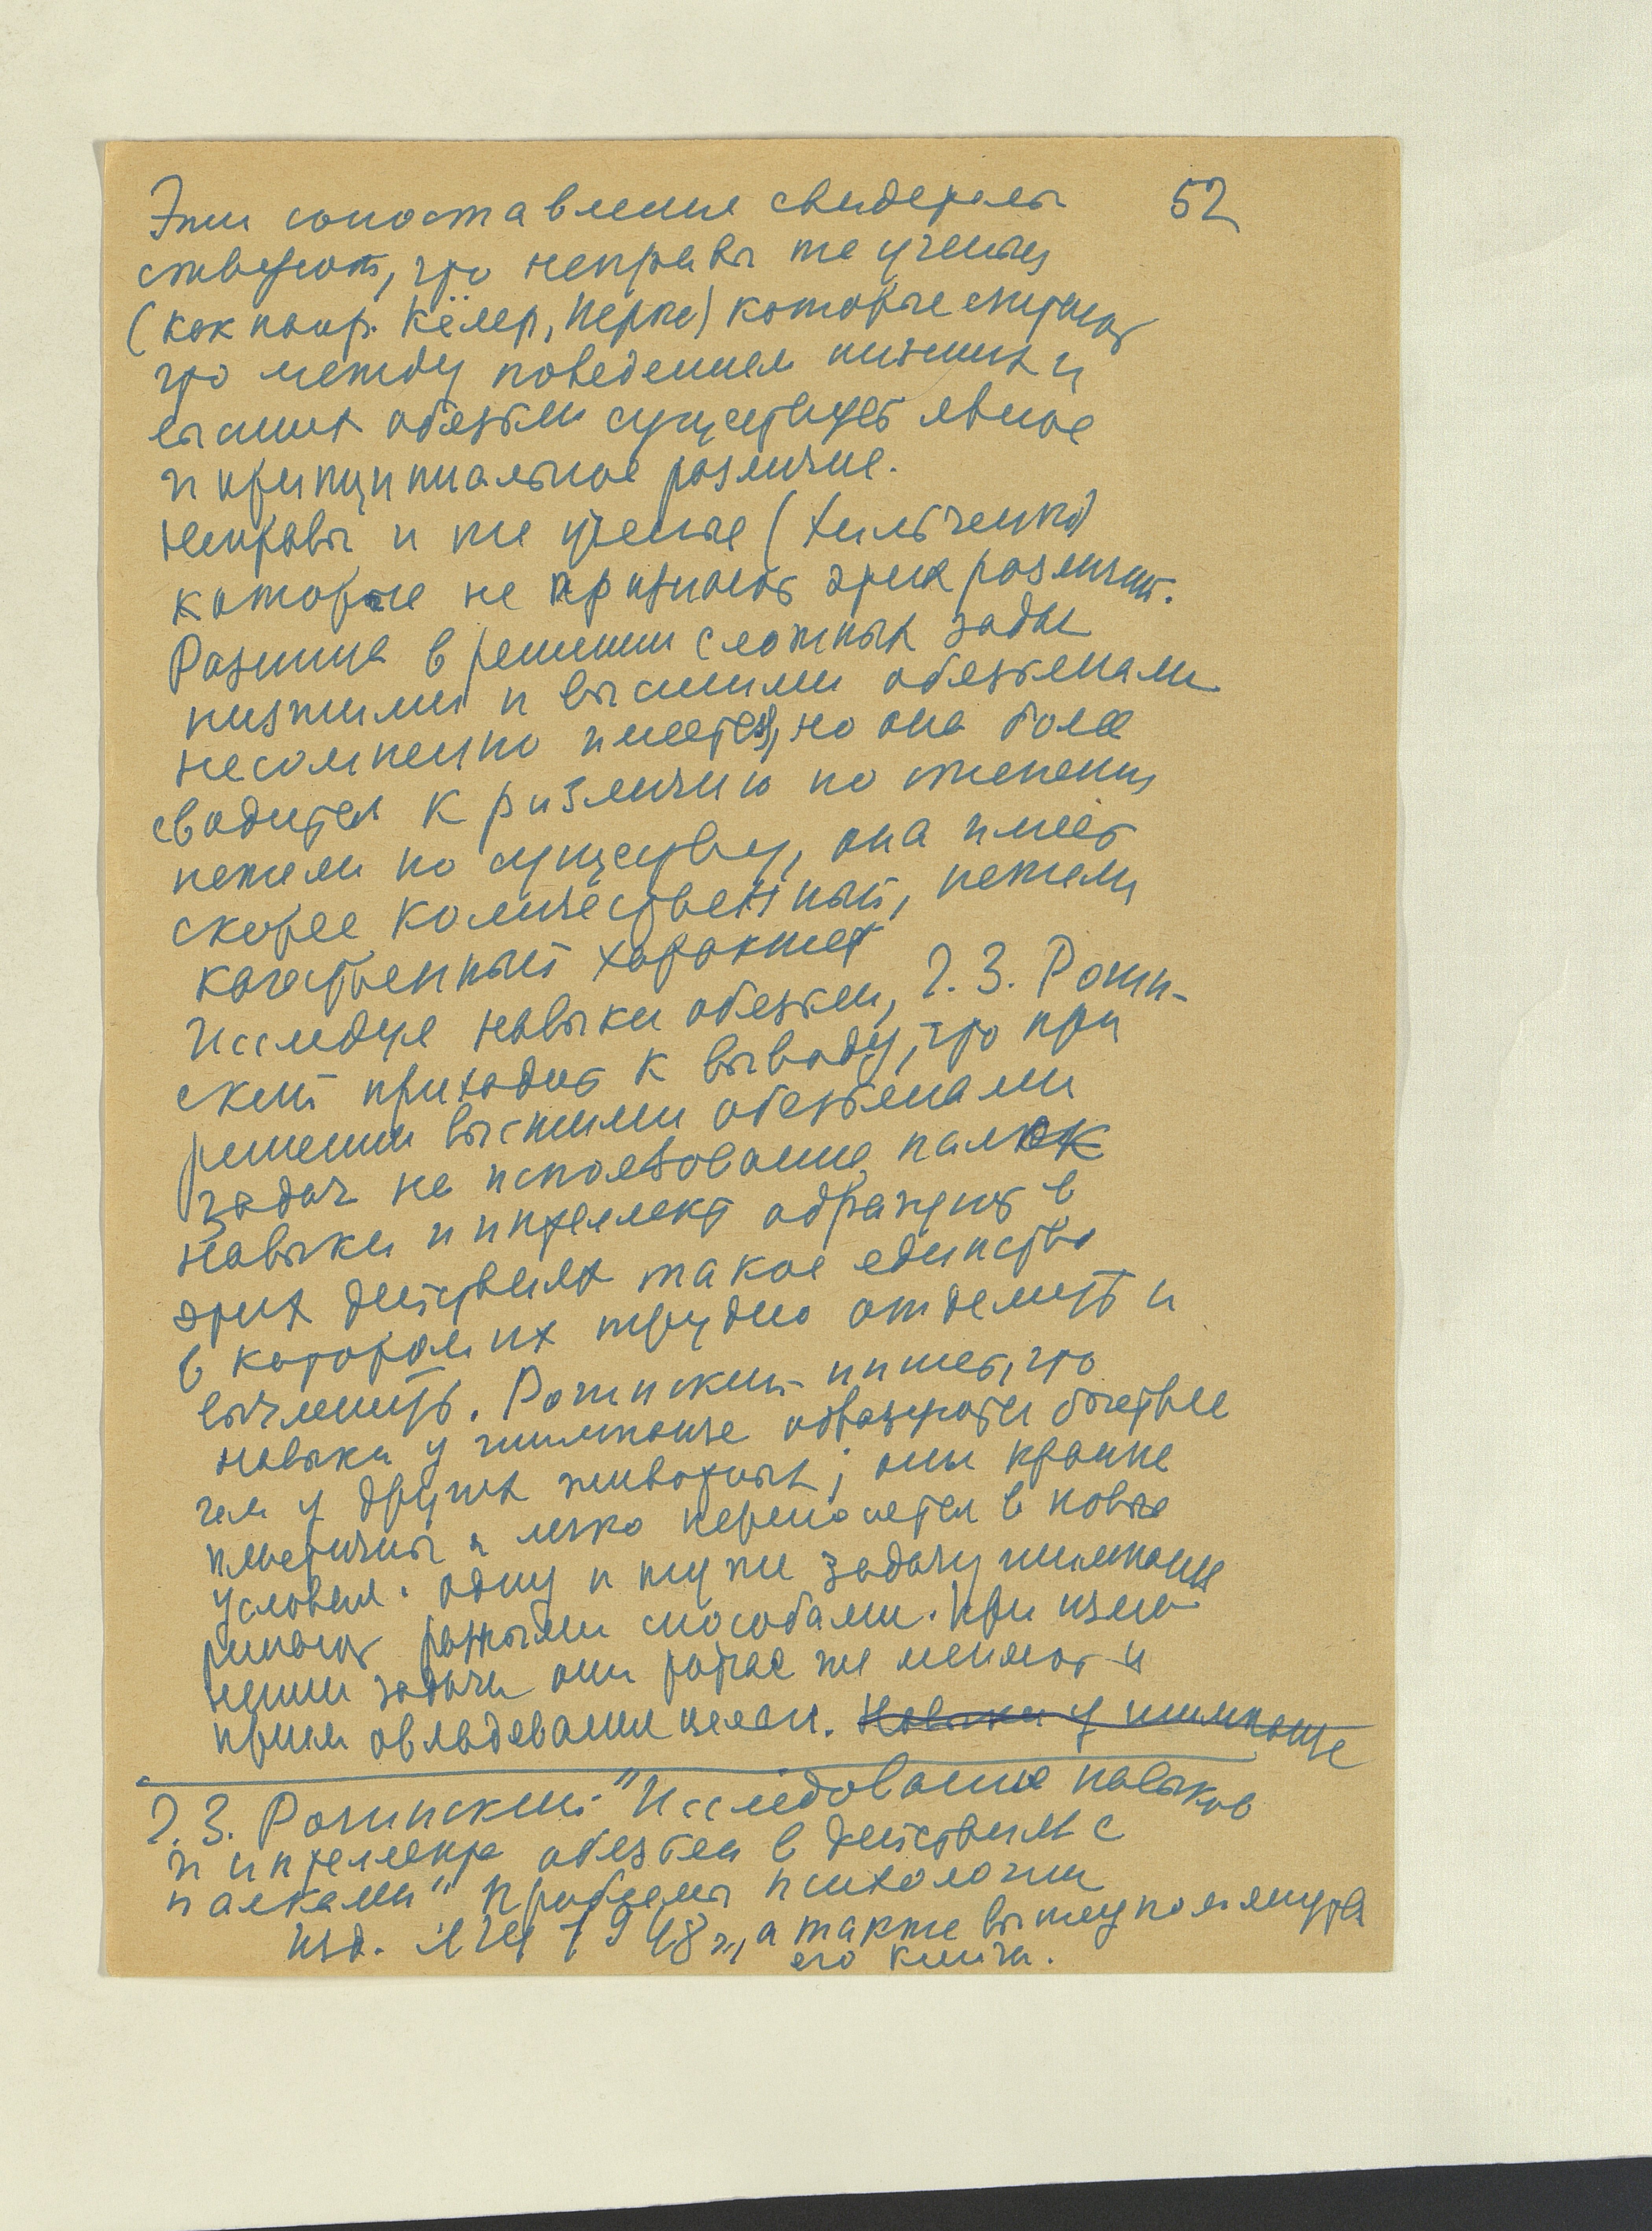 52
Эти сопоставления свидетель
ствуют, что неправы те ученые
(как напр. Кёлер, Иеркс) которые считают
что между поведением низших и
высших обезьян существует явное
и принципиальное различие.
Неправы и те ученые (Хильченко)
которые не признают этих различий.
Разница в решении сложных задач
низшими и высшими обезьянами
несомненно имеется, но она более
сводится к различию по степени
нежели по существу, она имеет
скорее количественный, нежели
качественный характер
Исследуя навыки обезьян, Г.З. Роги-
ский приходит к выводу, что при
решении высшими обезьянами
задач на использование палок
навыки и интеллект образуют в
этих действиях такое единство
в котором их трудно отделить и
вычленить. Рогинский пишет, что
навыки у шимпанзе образуются быстрее
чем у других животных; они крайне
пластичны и легко переносятся в новые
условия. Одну и ту же задачу шимпанзе
решают разными способами. При изме-
нении задачи они тотчас же меняют и
прием овладевания целью. Навыки у шимпанзе
Г.З. Рогинский "Исследование навыков
и интеллекта обезьян в действиях с
палками" Проблемы психологии
Изд. ЛГУ 1948 г., а также вышеупомянутая
его книга.